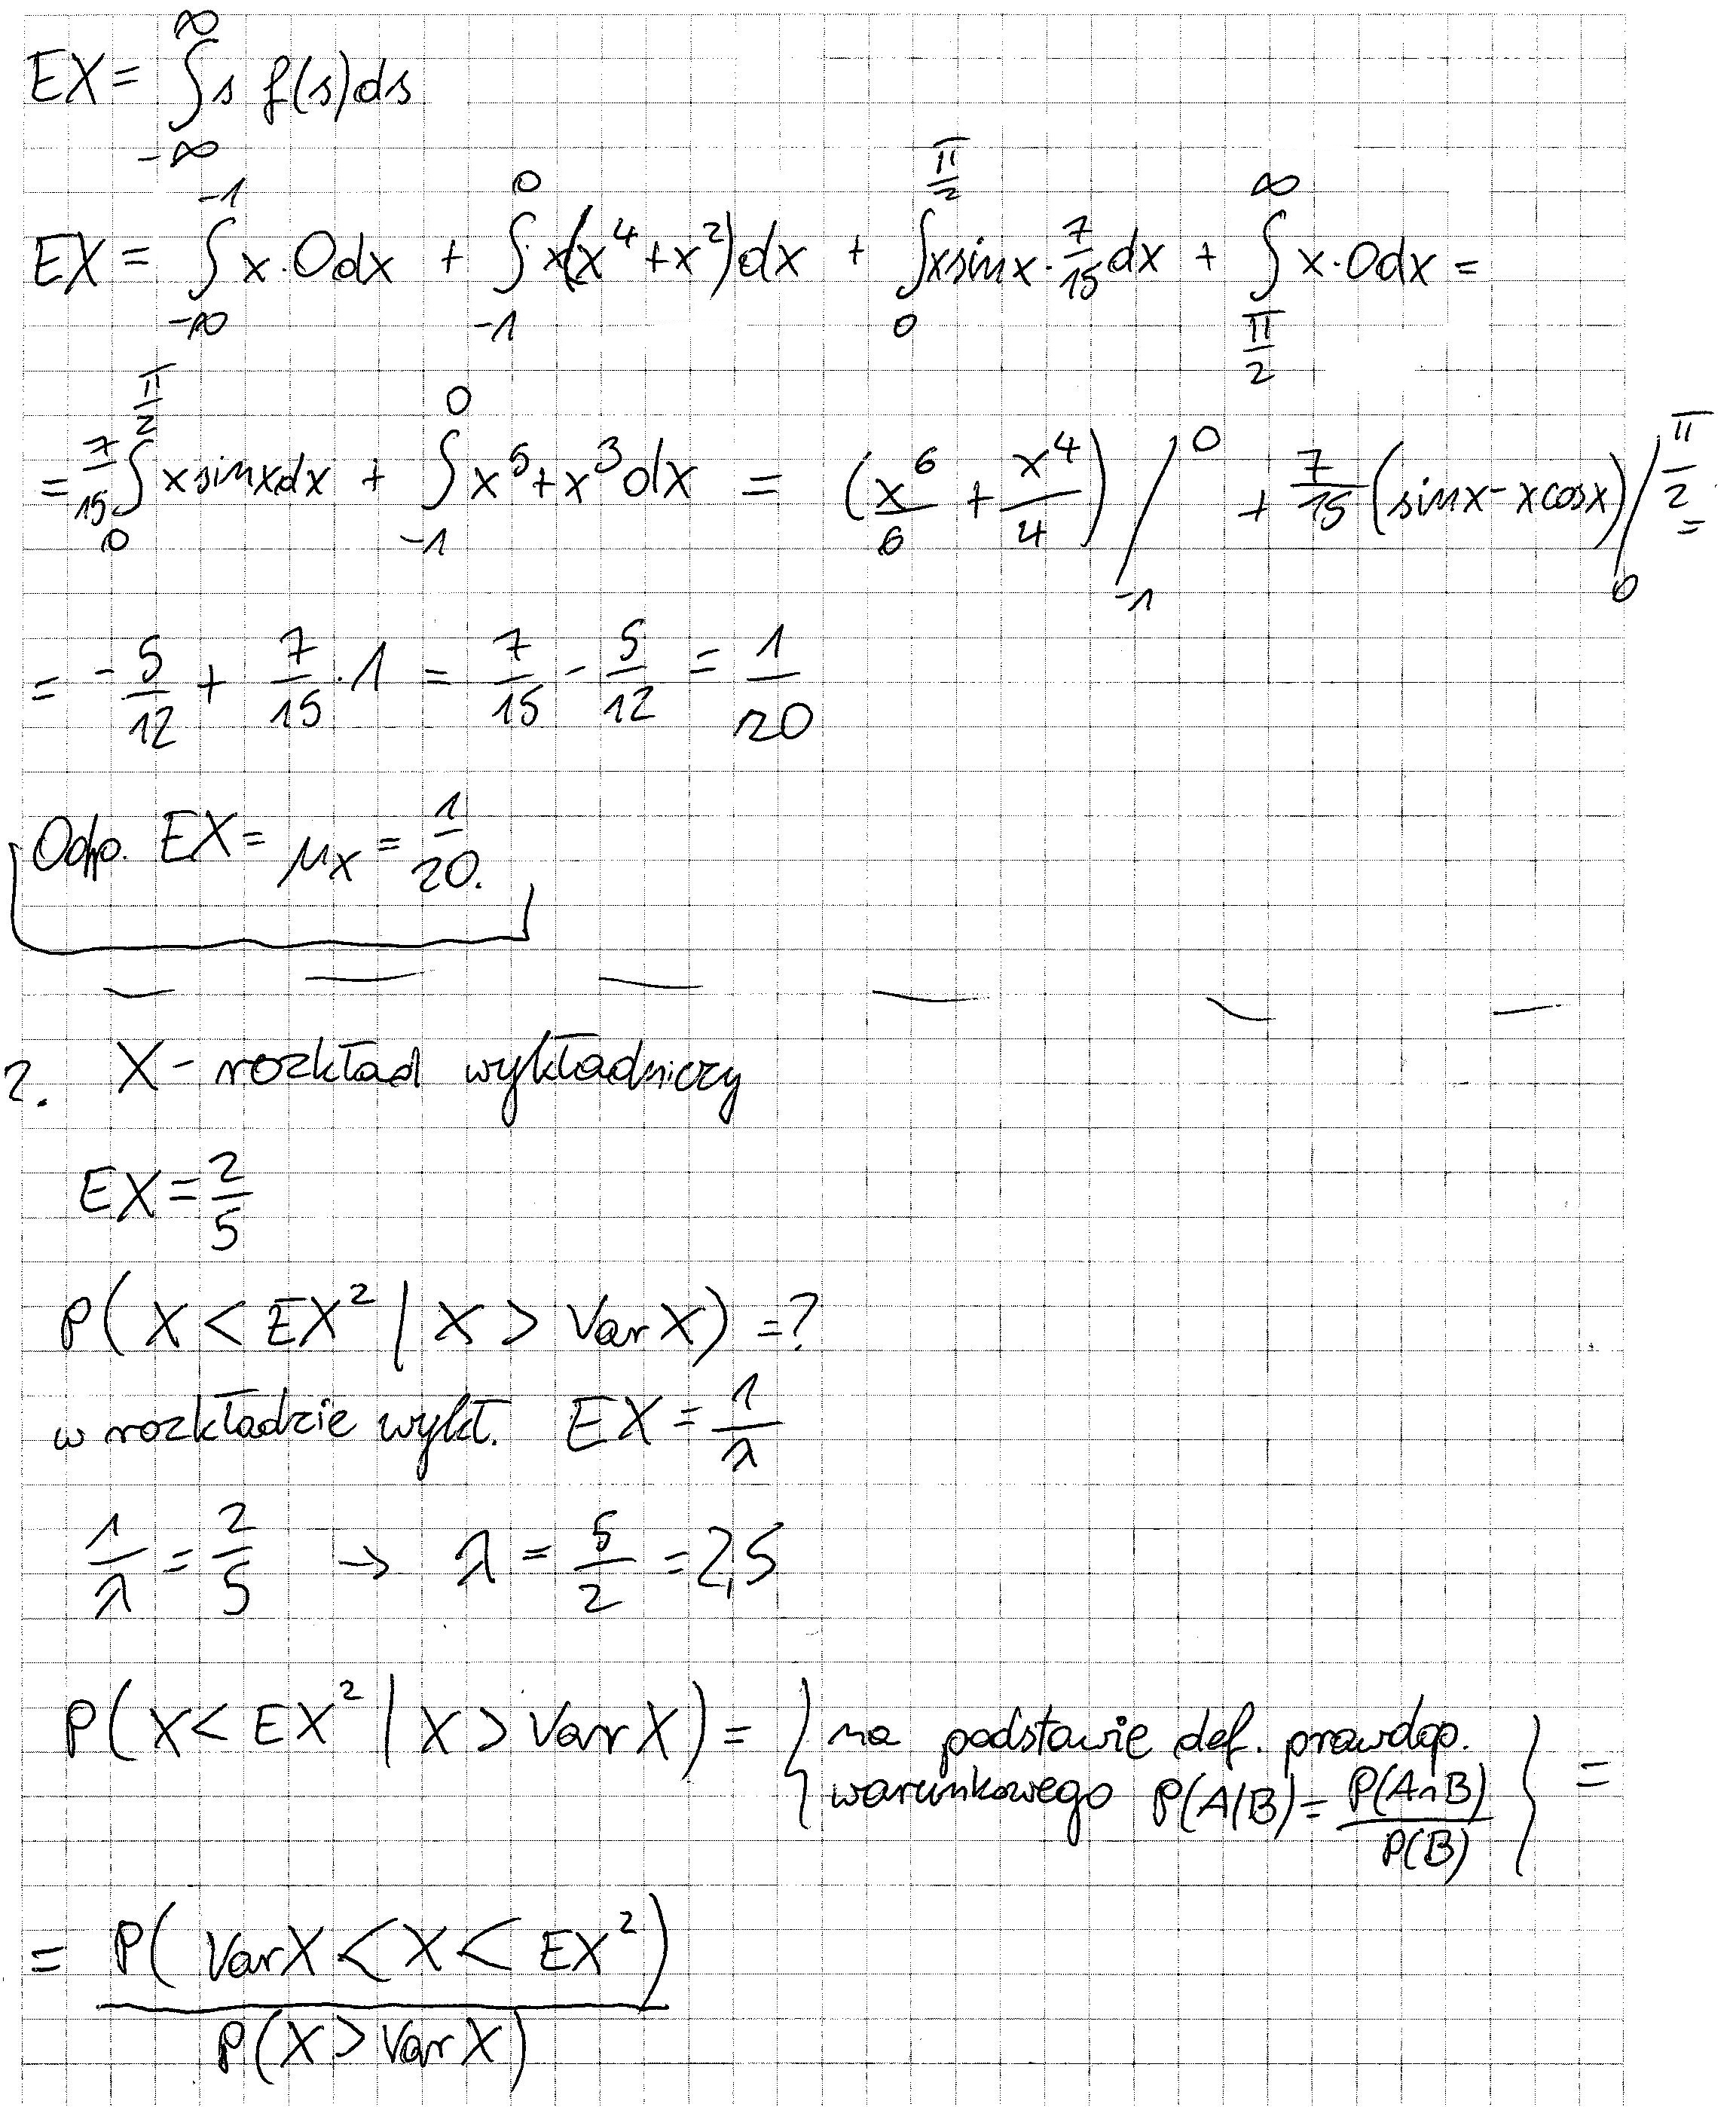 EX = ∫_{-∞}^{∞} s f(s)ds
EX = ∫_{-∞}^{-1} x·0dx + ∫_{-1}^{0} x(x^4+x^2)dx + ∫_{0}^{π/2} xsinx·7/15 dx + ∫_{π/2}^{∞} x·0dx =
= 7/15 ∫_{0}^{π/2} xsinxdx + ∫_{-1}^{0} x^5+x^3dx = (x^6/6 + x^4/4) /_{-1}^{0} + 7/15 (sinx-xcosx) /_{0}^{π/2} =
= -5/12 + 7/15·1 = 7/15 - 5/12 = 1/20
Odp. EX = μ_X = 1/20.
2. X - rozkład wykładniczy
EX = 2/5
P(X < EX^2 | X > VarX) = ?
w rozkładzie wykł. EX = 1/λ
1/λ = 2/5 → λ = 5/2 = 2,5
P(X < EX^2 | X > VarX) = { na podstawie def. prawdop.
warunkowego P(A|B) = P(A∩B)/P(B) } =
= P(VarX < X < EX^2) / P(X > VarX)